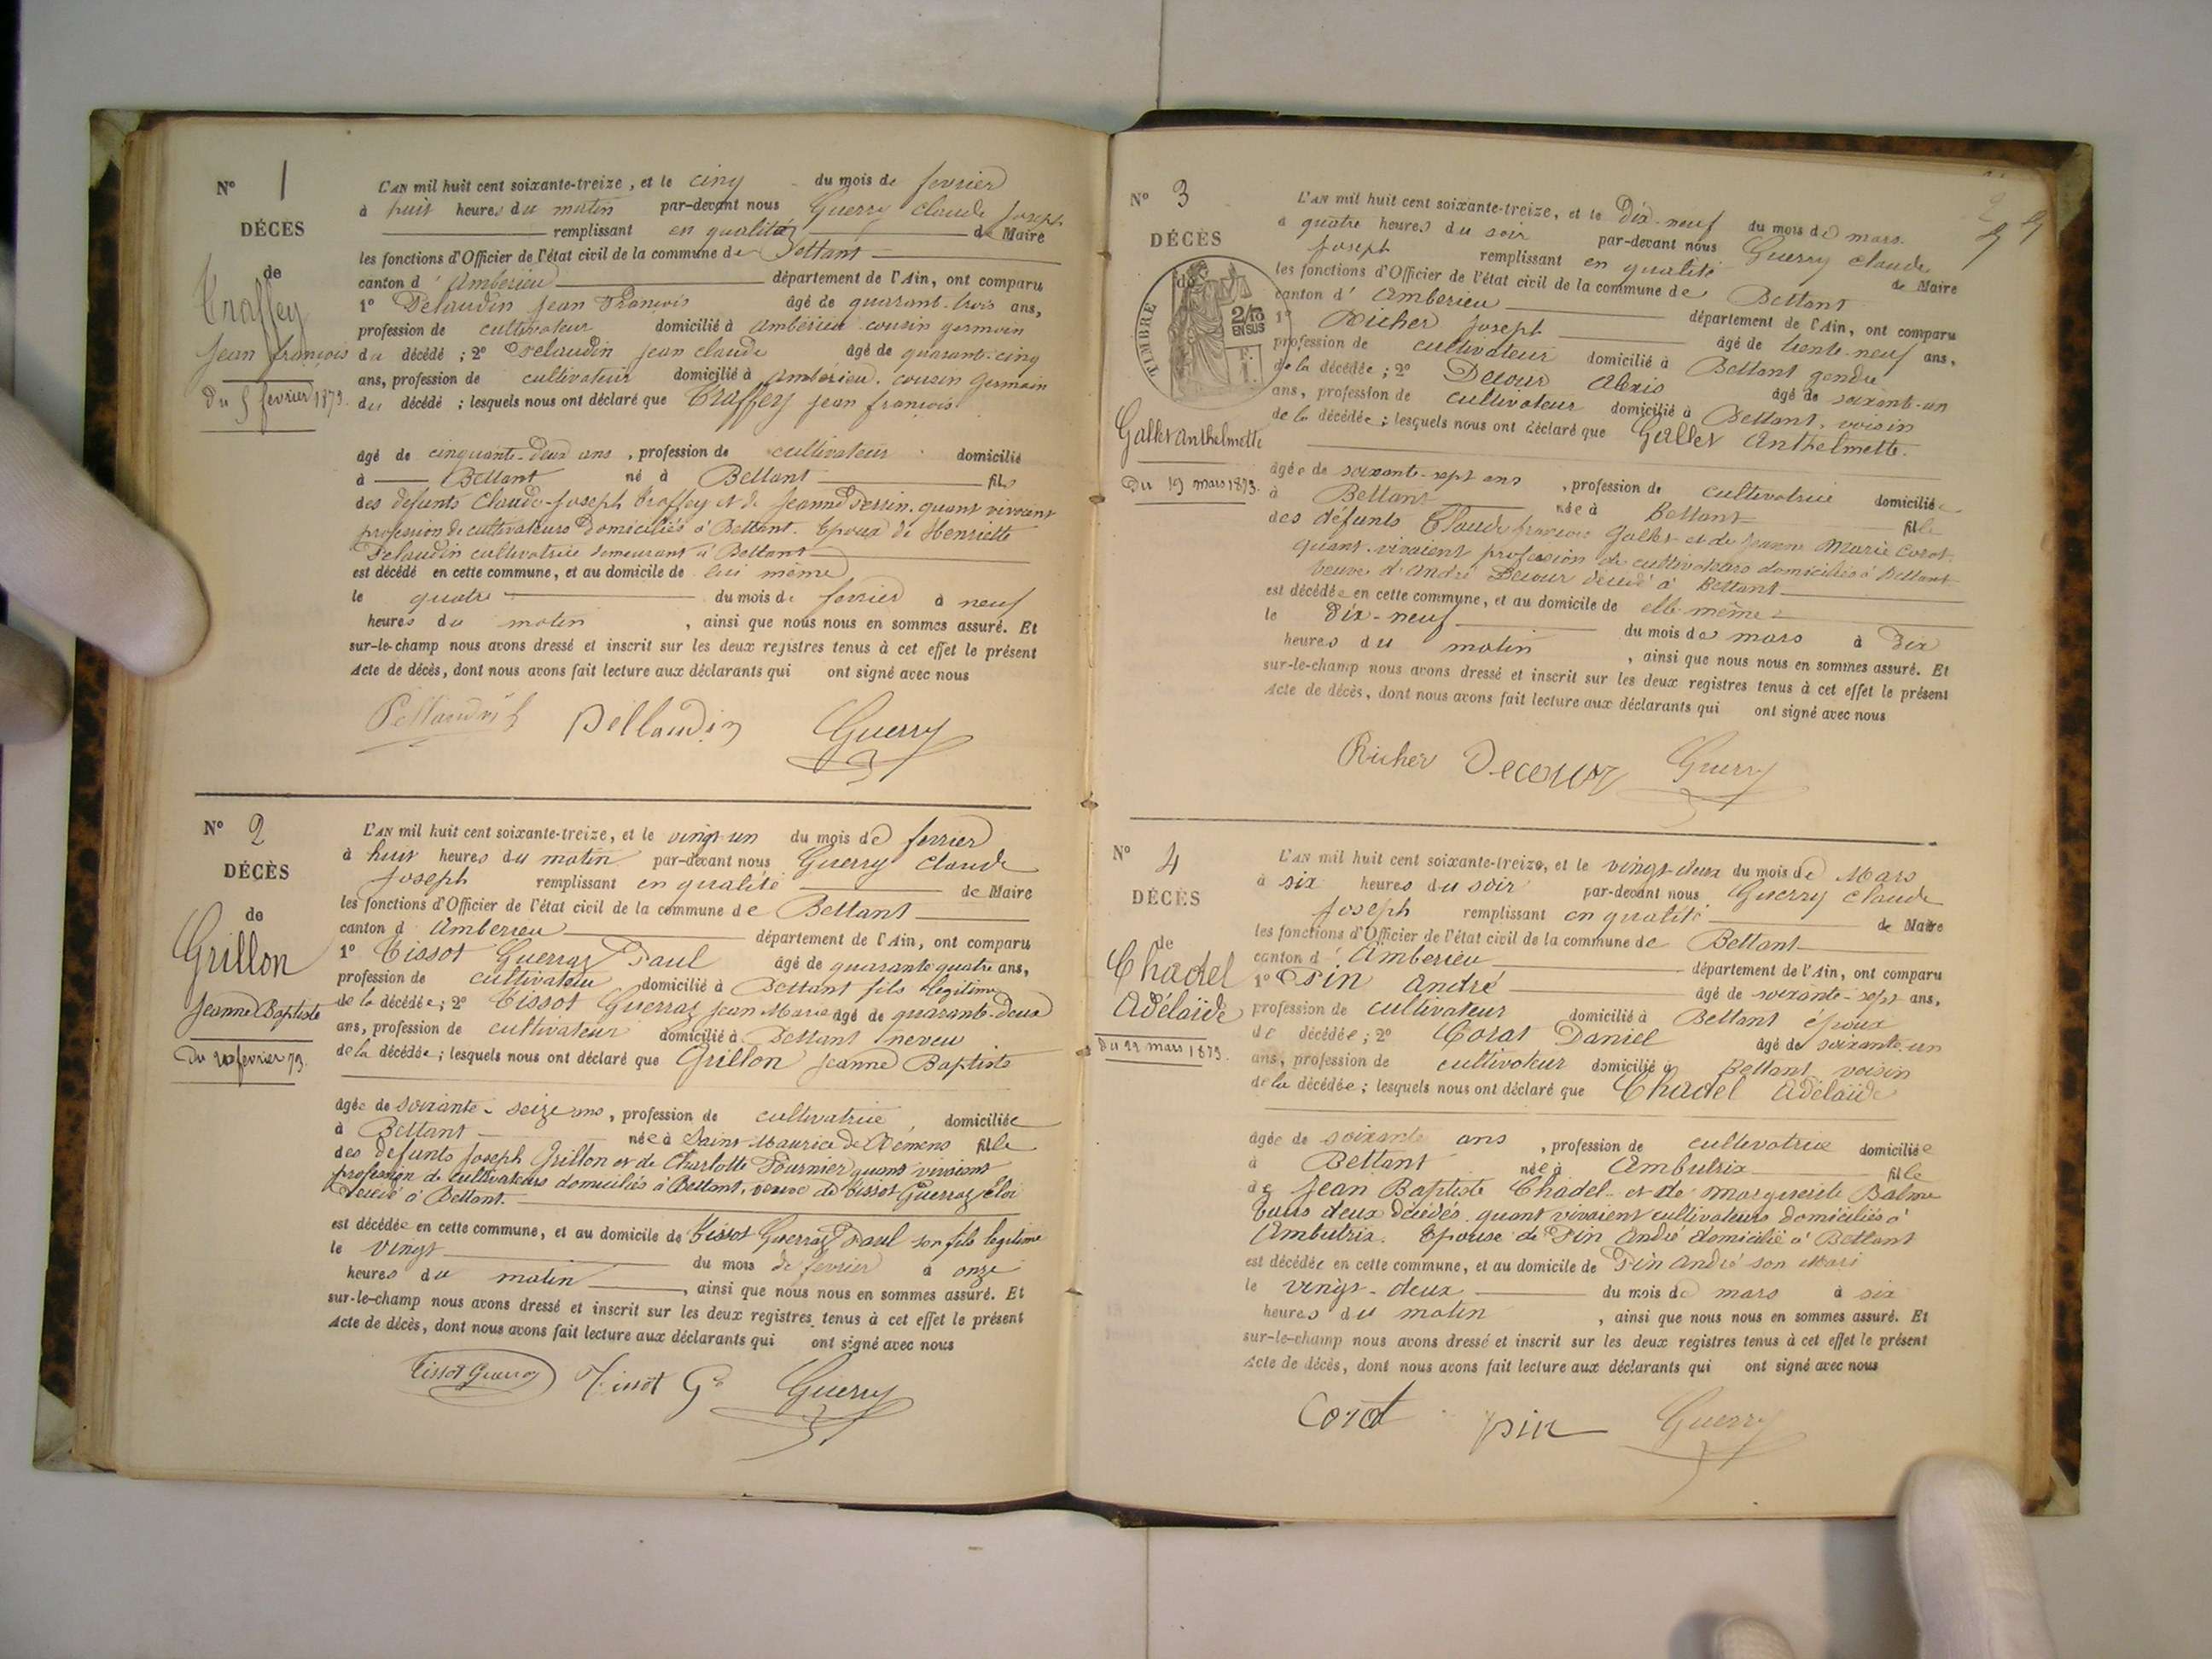 N° 1
DÉCÈS
de
Traffey
Jean françois
du 5 fevrier 1873.
L'AN mil huit cent soixante-treize, et le cinq du mois de fevrier
à huit heures du matin par-devant nous Guerry Claude Joseph
remplissant en qualité de Maire
les fonctions d'Officier de l'état civil de la commune de Bettant
canton d'Amberieu département de l'Ain, ont comparu
1° Delaudin Jean François âgé de quarant-trois ans,
profession de cultivateur domicilié à Amberieu cousin germain
du décédé ; 2° Delaudin Jean Claude âgé de quarant-cinq
ans, profession de cultivateur domicilié à Amberieu. cousin Germain
du décédé ; lesquels nous ont déclaré que Traffey Jean françois
âgé de cinquante-deux ans, profession de cultivateur domicilié
à Bettant né à Bettant fils
des defunts Claude-Joseph Traffey et de Jeanne Perrin. quant vivaient
profession de cultivateurs domiciliés à Bettant. Epoux de Henriette
Delaudin cultivatrice demeurant à Bettant
est décédé en cette commune, et au domicile de lui même
le quatre du mois de fevrier à neuf
heures du matin, ainsi que nous nous en sommes assuré. Et
sur-le-champ nous avons dressé et inscrit sur les deux registres tenus à cet effet le présent
Acte de décès, dont nous avons fait lecture aux déclarants qui ont signé avec nous
Dellaudin Guerry
N° 2
DÉCÈS
de
Grillon
Jeanne Baptiste
Du 20 fevrier 73.
L'AN mil huit cent soixante-treize, et le vingt-un du mois de fevrier
à huit heures du matin par-devant nous Guerry Claude
Joseph remplissant en qualité de Maire
les fonctions d'Officier de l'état civil de la commune de Bettant
canton d'Amberieu département de l'Ain, ont comparu
1° Tissot Guerraz Paul âgé de quarante quatre ans,
profession de cultivateur domicilié à Bettant fils légitime
de la décédée ; 2° Tissot Guerraz Jean Marie âgé de quarante-deux
ans, profession de cultivateur domicilié à Bettant neveu
de la décédée ; lesquels nous ont déclaré que Grillon Jeanne Baptiste
âgée de soixante-seize ans, profession de cultivatrice, domiciliée
à Bettant née à Saint Maurice de Remens fille
des defunts Joseph Grillon et de Charlotte Fournier quant vivaient
profession de cultivateurs domiciliés à Bettant, veuve de Tissot Guerraz Eloi
décédé à Bettant.
est décédée en cette commune, et au domicile de Tissot Guerraz Paul son fils legitime
le vingt du mois de fevrier à onze
heures du matin, ainsi que nous nous en sommes assuré. Et
sur-le-champ nous avons dressé et inscrit sur les deux registres tenus à cet effet le présent
Acte de décès, dont nous avons fait lecture aux déclarants qui ont signé avec nous
Tissot Guerraz Tissot Gz Guerry
N° 3
DÉCÈS
de
TIMBRE
2/10
EN SUS
Gallet Anthelmette
Du 19 mars 1873.
L'AN mil huit cent soixante-treize, et le Dix-neuf du mois de mars
à quatre heures du soir par-devant nous Guerry Claude
Joseph remplissant en qualité de Maire
les fonctions d'Officier de l'état civil de la commune de Bettant
canton d'Amberieu département de l'Ain, ont comparu
1° Richer Joseph âgé de trente-neuf ans,
profession de cultivateur domicilié à Bettant gendre
de la décédée ; 2° Decour Alexis âgé de soixant-un
ans, profession de cultivateur domicilié à Bettant, voisin
de la décédée ; lesquels nous ont déclaré que Gallet Anthelmette.
âgée de soixante-sept ans, profession de cultivatrice domiciliée
à Bettant née à Bettant fille
des défunts Claude françois Gallet et de Jeanne Marie Corot
quant-vivaient profession de cultivateurs domiciliés à Bettant
veuve d'André Decour décédé à Bettant
est décédée en cette commune, et au domicile de elle-même
le Dix-neuf du mois de mars à dix
heures du matin, ainsi que nous nous en sommes assuré. Et
sur-le-champ nous avons dressé et inscrit sur les deux registres tenus à cet effet le présent
Acte de décès, dont nous avons fait lecture aux déclarants qui ont signé avec nous
Richer Decour Guerry
N° 4
DÉCÈS
de
Chadel
Adélaïde
Du 22 mars 1873.
L'AN mil huit cent soixante-treize, et le vingt-deux du mois de Mars
à six heures du soir par-devant nous Guerry Claude
Joseph remplissant en qualité de Maire
les fonctions d'Officier de l'état civil de la commune de Bettant
canton d'Amberieu département de l'Ain, ont comparu
1° Pin André âgé de soixante-sept ans,
profession de cultivateur domicilié à Bettant époux
de décédée ; 2° Corat Daniel âgé de soixante-un
ans, profession de cultivateur domicilié à Bettant voisin
de la décédée ; lesquels nous ont déclaré que Chadel Adélaïde
âgée de soixante ans, profession de cultivatrice domiciliée
à Bettant née à Ambutrix fille
de Jean Baptiste Chadel et de Marguerite Balme
tous deux décédés quant vivaient cultivateurs domiciliés à
Ambutrix. Epouse de Pin André domicilié à Bettant
est décédée en cette commune, et au domicile de Pin André son Mari
le vingt-deux du mois de mars à six
heures du matin, ainsi que nous nous en sommes assuré. Et
sur-le-champ nous avons dressé et inscrit sur les deux registres tenus à cet effet le présent
Acte de décès, dont nous avons fait lecture aux déclarants qui ont signé avec nous
Corat pin Guerry